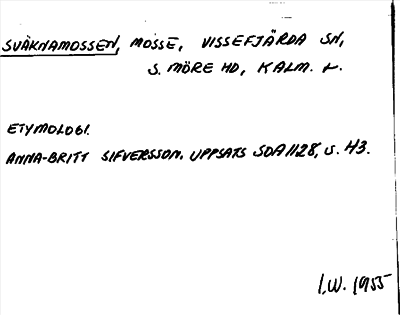 SVÄKNAMOSSEN, MOSSE, VISSEFJÄRDA SN,
S. MÖRE HD, KALM. L.
ETYMOLOGI.
ANNA-BRITT SIFVERSSON. UPPSATS SOA 1128, S. 43.
I.W. 1955